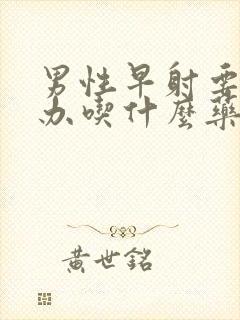 男性早射要
办喫什麼藥
黃世銘